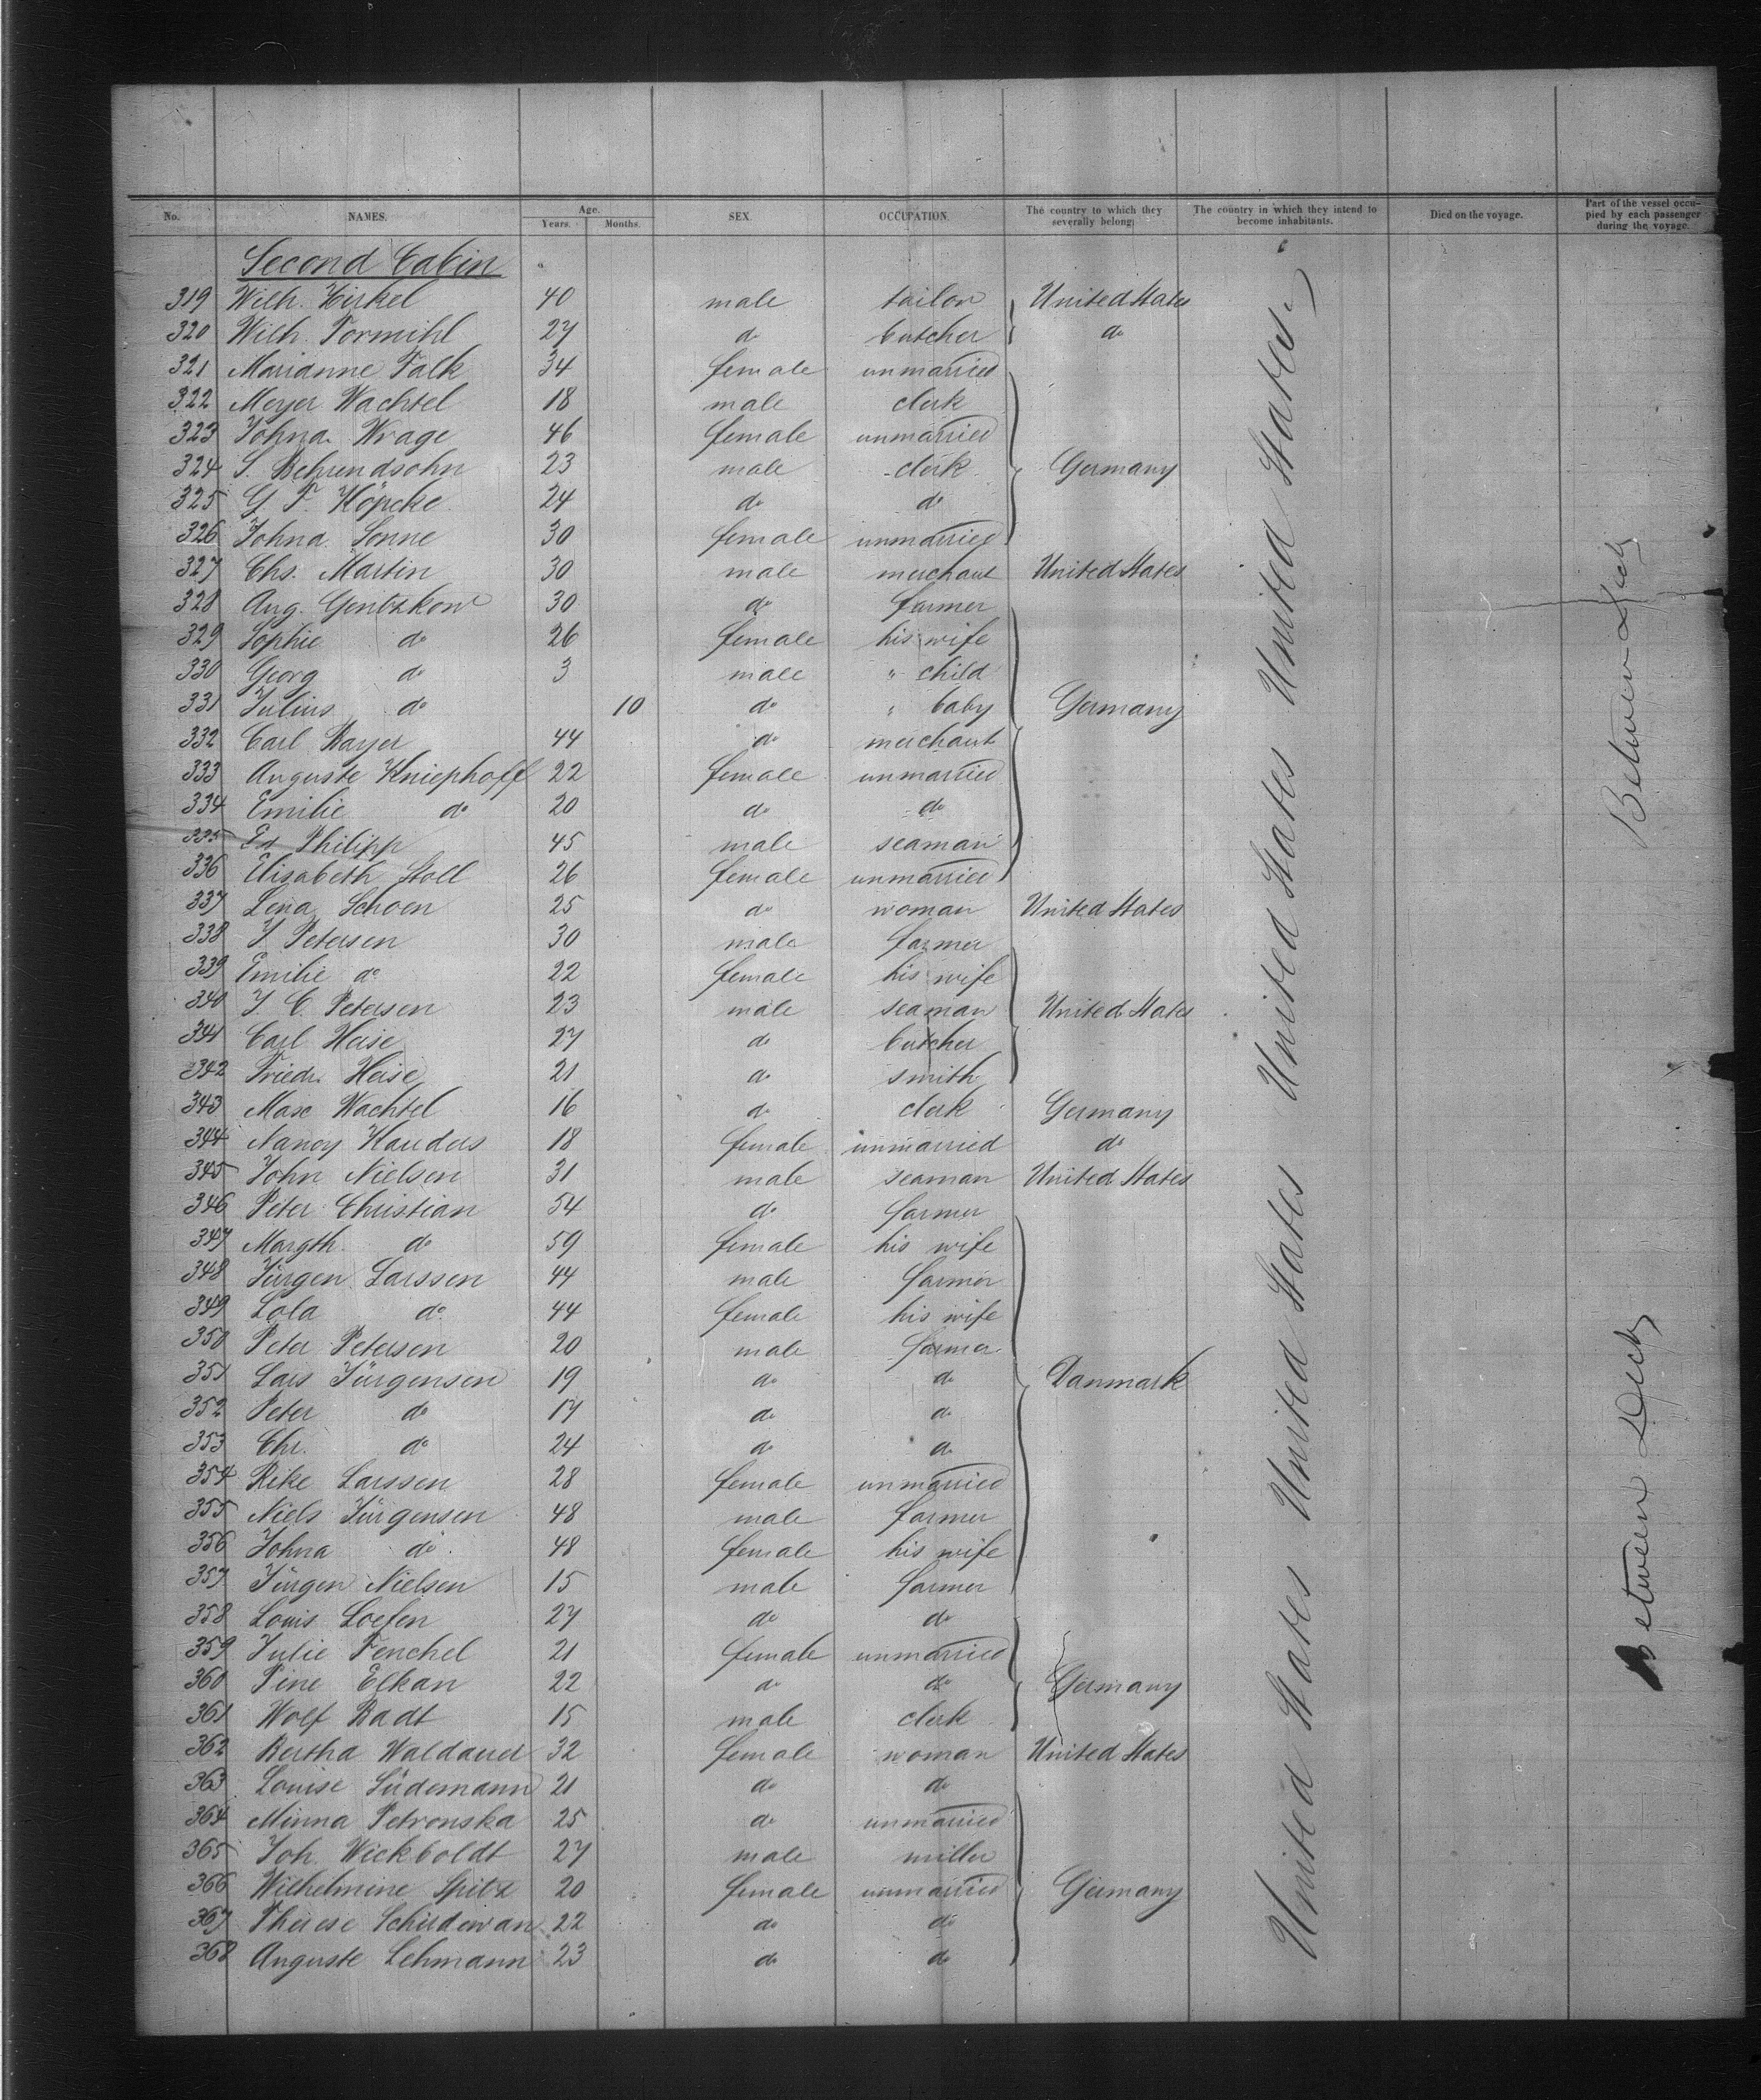 No. NAMES. Age. Years. Months. SEX. OCCUPATION. The country to which they severally belong. The country in which they intend to become inhabitants. Died on the voyage. Part of the vessel occupied by each passenger during the voyage.
Second Cabin
319 Wilh. Hirkel 40 male tailor United States
320 Wilh. Formihl 27 do butcher do
321 Marianne Falk 34 female unmarried
322 Meyer Wachtel 18 male clerk
323 Johna. Wrage 46 female unmarried
324 S. Behrendsohn 23 male clerk Germany
325 G F. Köpcke 24 do do
326 Johna. Sonne 30 female unmarried
327 Chs. Martin 30 male merchant United States
328 Aug. Gentzkow 30 do farmer
329 Sophie do 26 female his wife
330 Georg do 3 male " child
331 Julius do 10 do " baby Germany
332 Carl Bayer 44 do merchant
333 Auguste Kniephoff 22 female unmarried
334 Emilie do 20 do do
335 Ed Philipp 45 male seaman
336 Elisabeth Stoll 26 female unmarried
337 Lena Schoen 25 do woman United States
338 J. Petersen 30 male farmer
339 Emilie do 22 female his wife
340 J. C. Petersen 23 male seaman United States
341 Carl Heise 27 do butcher
342 Friedr. Heise 21 do smith
343 Max Wachtel 16 do clerk Germany
344 Nancy Kauders 18 female unmarried do
345 John Nielsen 31 male seaman United States
346 Peter Christian 54 do farmer
347 Margth. do 59 female his wife
348 Jürgen Larssen 44 male farmer
349 Lola do 44 female his wife
350 Peter Petersen 20 male farmer
351 Lars Jürgensen 19 do do Danmark
352 Peter do 17 do do
353 Chr. do 24 do do
354 Rike Larssen 28 female unmarried
355 Niels Jürgensen 48 male farmer
356 Johna do 48 female his wife
357 Jürgen Nielsen 15 male farmer
358 Louis Loefen 27 do do
359 Julie Fenchel 21 female unmarried
360 Pine Elkan 22 do do Germany
361 Wolf Badt 15 male clerk
362 Bertha Waldauer 32 female woman United States
363 Louise Lüdemann 21 do do
364 Minna Petronska 25 do unmarried
365 Joh. Wickboldt 27 male miller
366 Wilhelmine Spitz 20 female unmarried Germany
367 Therese Schirdewan 22 do do
368 Auguste Lehmann 23 do do
United States United States United States United States United States
Between Deck
Between Deck